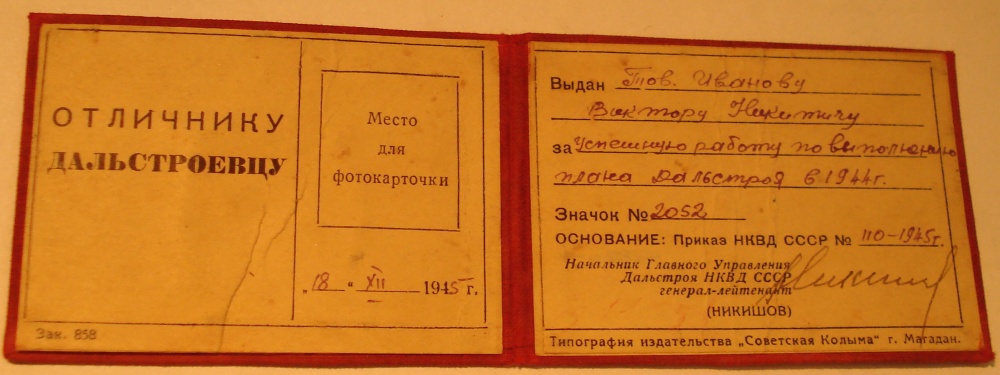 ОТЛИЧНИКУ
ДАЛЬСТРОЕВЦУ
Место
для
фотокарточки
„18“ XII 1945 г.
Зак. 858
Выдан Тов. Иванову
Виктору Никитичу
за Успешную работу по выполнению
плана Дальстроя в 1944г.
Значок № 2052
ОСНОВАНИЕ: Приказ НКВД СССР № 110-1945г.
Начальник Главного Управления
Дальстроя НКВД СССР
генерал-лейтенант
(НИКИШОВ)
Типография издательства „Советская Колыма“ г. Магадан.